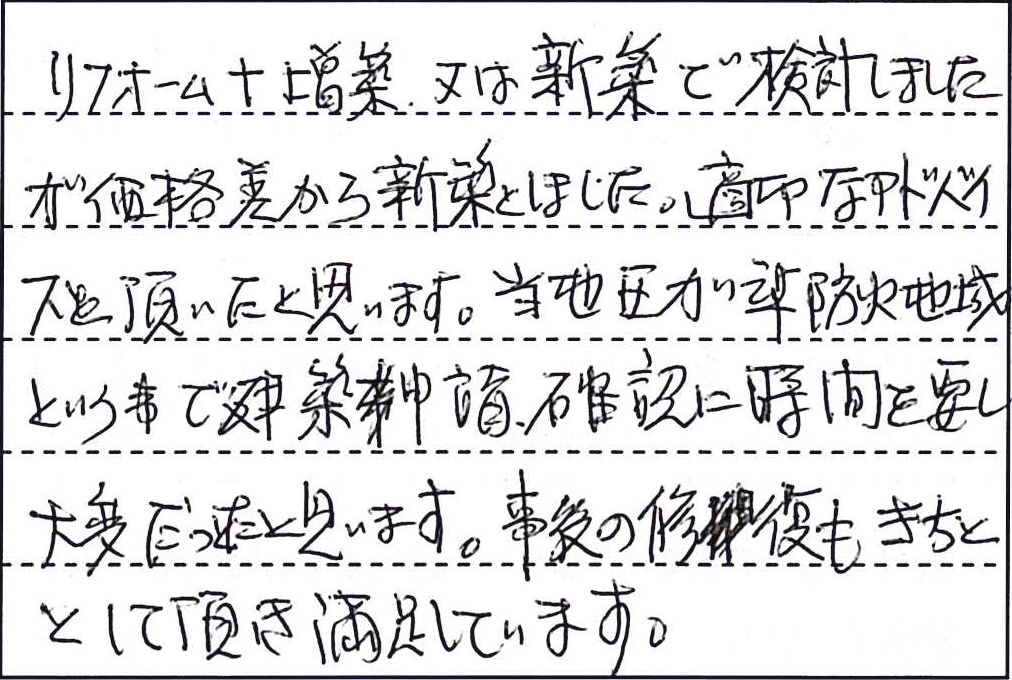 リフォーム+増築.又は新築で検討しました
が価格差から新築としました。適切なアドバイ
スを頂いたと思います。当地区が準防火地域
という事で建築申請、確認に時間を要し
大変だったと思います。事後の修復もきちと
として頂き満足しています。